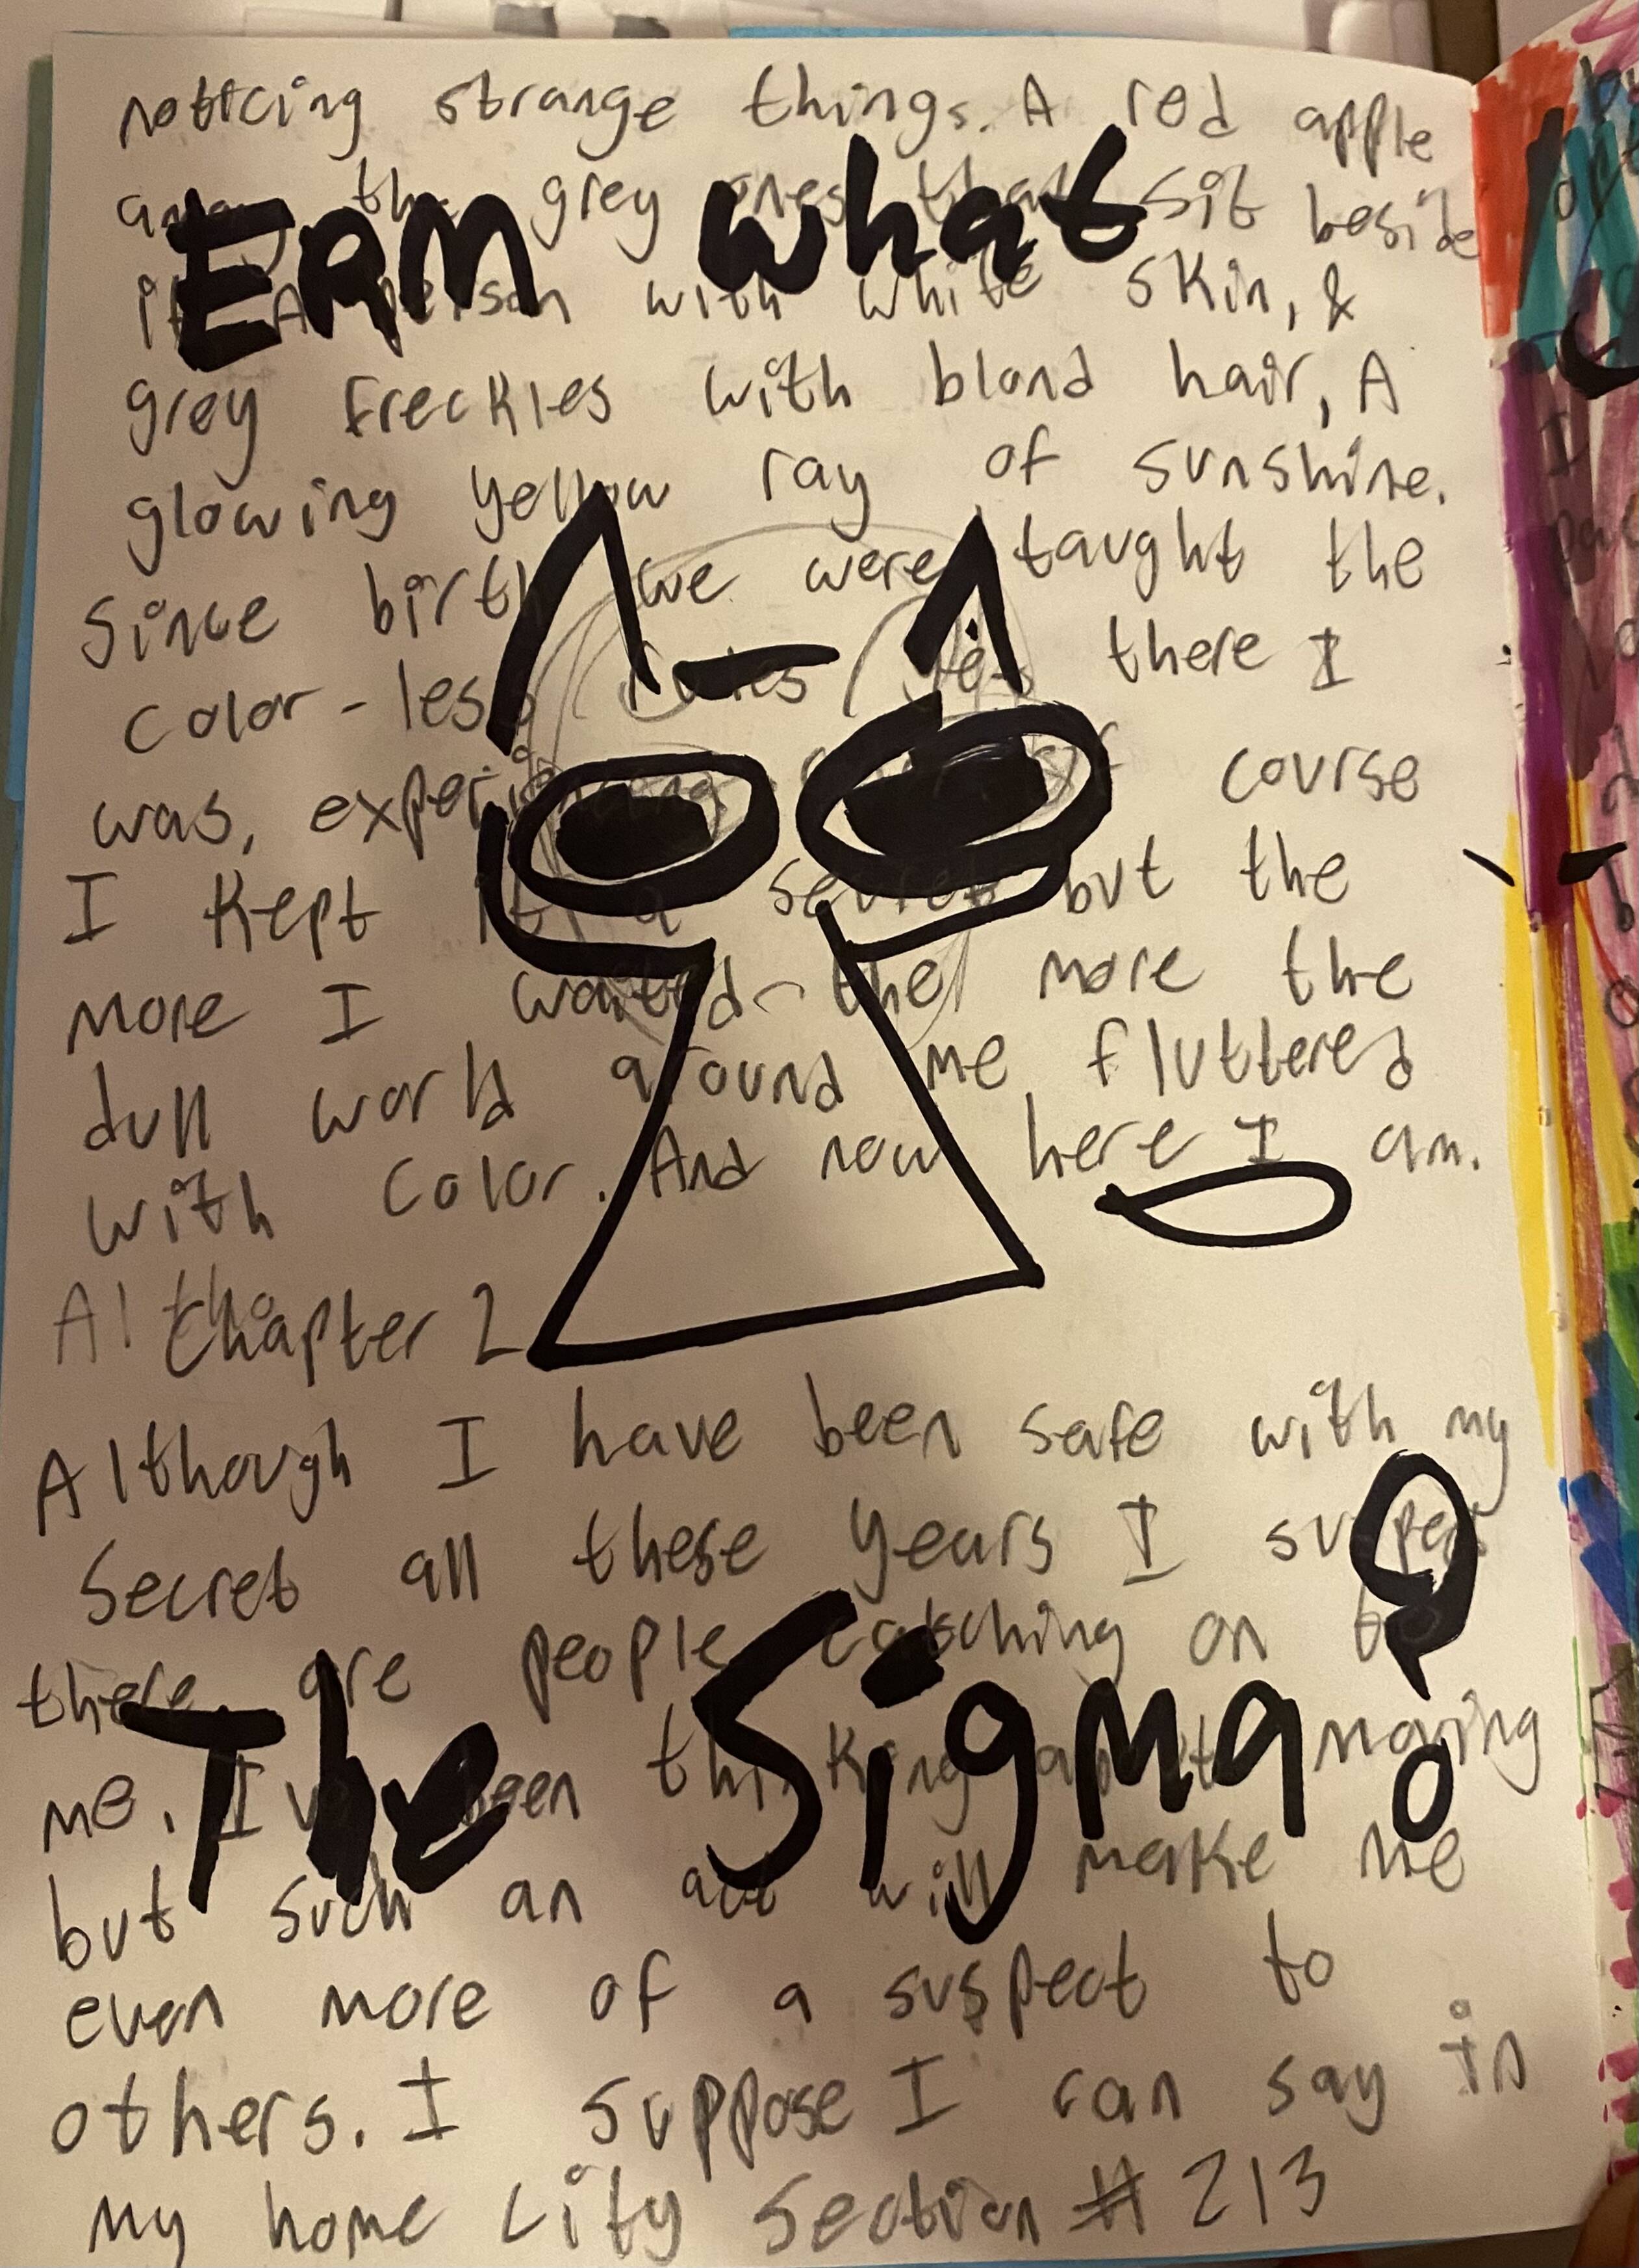 noticing strange things. A red apple
the grey ones that sit beside
ERM what
it. A person with white skin, &
grey freckles with blond hair, A
glowing yellow ray of sunshine.
Since birth we were taught the
color-less rules yet there I
was, experiencing course
I kept it a secret but the
more I wanted the more the
dull world around me fluttered
with color. And now here I am.
Altho
Chapter 2
Although I have been safe with my
Secret all these years I suspect
there are people catching on to
The Sigma?
me. I've been thinking about moving
but such an act will make me
even more of a suspect to
others. I suppose I can say in
my home city section #213